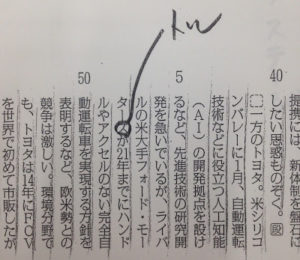 提携には、新体制を盤石に
したい思惑ものぞく。図
一方のトヨタ。米シリコ
ンバレーに1月、自動運転
技術などに役立つ人工知能
（ＡＩ）の開発拠点を設け
るなど、先進技術の研究開
発を急いでいるが、ライバ
ルの米大手フォード・モー
ターズが21年までにハンド
ルやアクセルのない完全自
動運転車を実現する方針を
表明するなど、欧米勢との
競争は激しい。環境分野で
も、トヨタは14年にＦＣＶ
を世界で初めて市販したが
40
5
50
トル